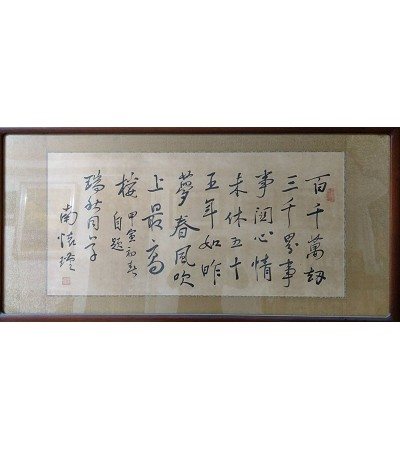 百千萬劫
三千界事
事關心情
未休五十
五年如昨
夢春風吹
上最高
樓
甲寅初春
自題
瑞秋同学
南懷瑾